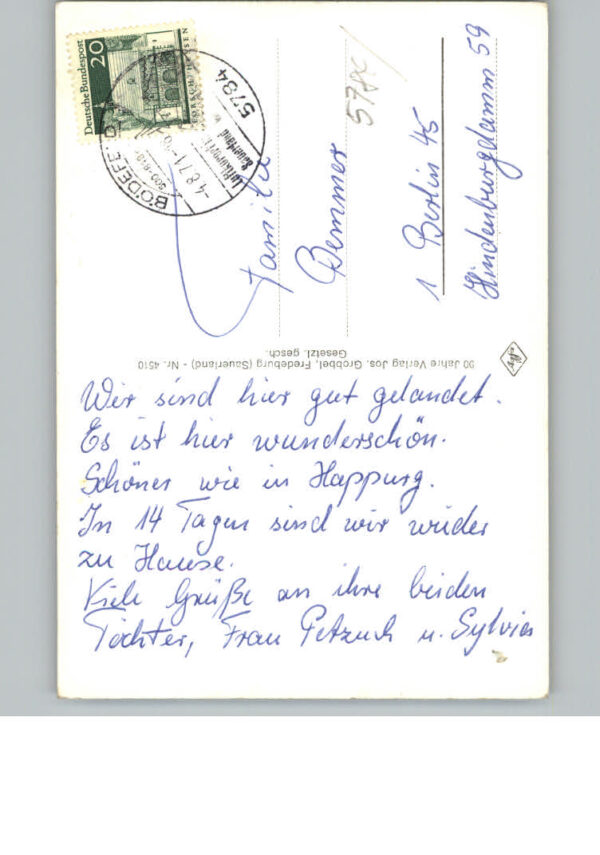 Wir sind hier gut gelandet.
Es ist hier wunderschön.
Schöner wie in Happurg.
In 14 Tagen sind wir wieder
zu Hause.
Viele Grüße an ihre beiden
Töchter, Frau Petzuch u. Sylvia
90 Jahre Verlag Jos. Grobbel, Fredeburg (Sauerland) - Nr. 4510
Gesetzl. gesch.
Familie
Bemmer
1 Berlin 45
Hindenburgdamm 59
Deutsche Bundespost
20
LORSCH/HESSEN
BÖDEFELD
5784
-4.8.71-
Luftkurort
Sauerland